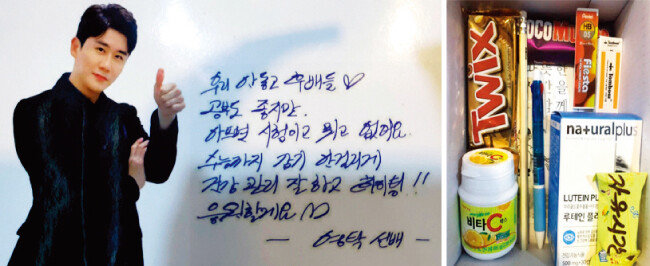 우리 안동고 후배들♡
공부도 좋지만,
아프면 시험이고 뭐고 없어요
수능까지 감기 안걸리게
건강 관리 잘 하고 화이팅!!
응원할게요♡
— 영탁 선배 —
TWIX
Pentel
HB
05
Fiesta
Tombow
na+uralplus
LUTEIN
루테인
500mg
비타C
자유시간